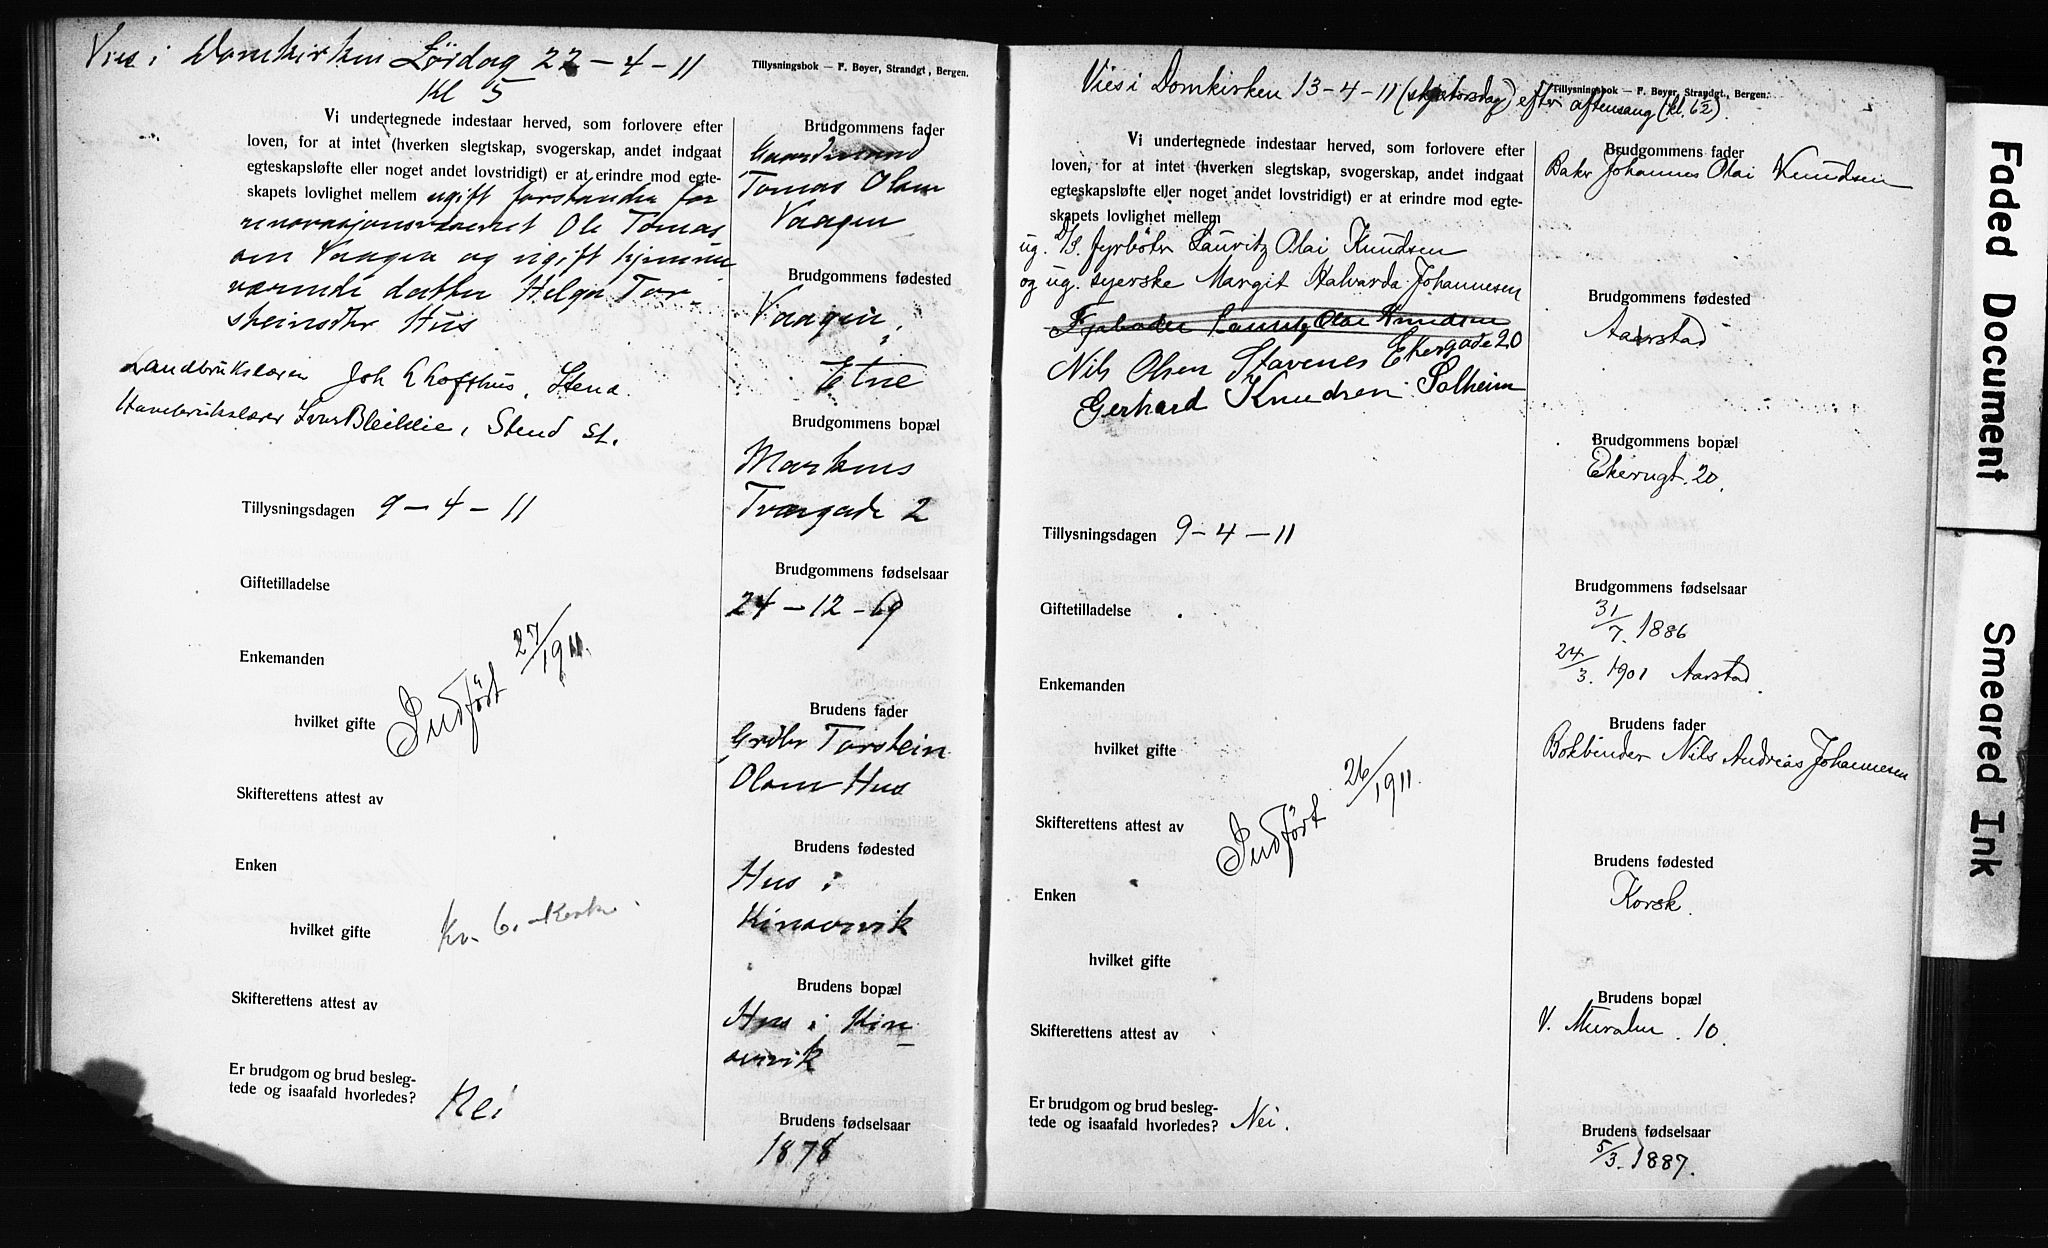 Vies i Domkirken Lördag 22-4-11
Kl 5
Tillysningsbok — F. Beyer, Strandgt., Bergen.
Vi undertegnede indestaar herved, som forlovere efter
loven, for at intet (hverken slegtskap, svogerskap, andet indgaat
egteskapsløfte eller noget andet lovstridigt) er at erindre mod egte-
skapets lovlighet mellem ugift forstander for
renovasjonsvæsenet Ole Tomas
sen Vaagen og ugift hjemme
værende datter Helga Tor-
steinsdtr Hus
Landbrukslærer Joh Lofthus, Stend
Havebrukslærer Ivar Bleiklie, Stend st.
Tillysningsdagen 9-4-11
Giftetilladelse
Enkemanden
hvilket gifte
Indført 27/1911.
Skifterettens attest av
Enken
hvilket gifte
Kv. 6.
Skifterettens attest av
Er brudgom og brud besleg-
tede og isaafald hvorledes? Nei
Brudgommens fader
Gaardmand
Tomas Olsen
Vaagen
Brudgommens fødested
Vaagen,
Etne
Brudgommens bopæl
Markens
Tværgade 2
Brudgommens fødselsaar
24-12-69
Brudens fader
Grdbr Torstein
Olsen Hus
Brudens fødested
Hus i
Kinservik
Brudens bopæl
Hus i Kin
servik
Brudens fødselsaar
1878
Vies i Domkirken 13-4-11 (skjærtorsdag) efter aftensang (kl. 6½).
Tillysningsbok — F. Beyer, Strandgt., Bergen.
Vi undertegnede indestaar herved, som forlovere efter
loven, for at intet (hverken slegtskap, svogerskap, andet indgaat
egteskapsløfte eller noget andet lovstridigt) er at erindre mod egte-
skapets lovlighet mellem
ug. D/S. fyrbøter Lauritz Olai Knudsen
og ug. syerske Margit Halvarda Johannesen
Fyrbøder Lauritz Olai Knudsen
Nils Olsen Stavenes Ekergade 20
Gerhard Knudsen Solheim
Tillysningsdagen 9-4-11
Giftetilladelse
Enkemanden
hvilket gifte
Indført 26/1911.
Skifterettens attest av
Enken
hvilket gifte
Skifterettens attest av
Er brudgom og brud besleg-
tede og isaafald hvorledes? Nei.
Brudgommens fader
Baker Johannes Olai Knudsen
Brudgommens fødested
Aarstad
Brudgommens bopæl
Ekerugt. 20.
Brudgommens fødselsaar
31/7. 1886
24/3. 1901 Aarstad
Brudens fader
Bokbinder Nils Andreas Johannesen
Brudens fødested
Korsk.
Brudens bopæl
V. Muralm. 10.
Brudens fødselsaar
5/3. 1887.
Faded Document
Smeared Ink